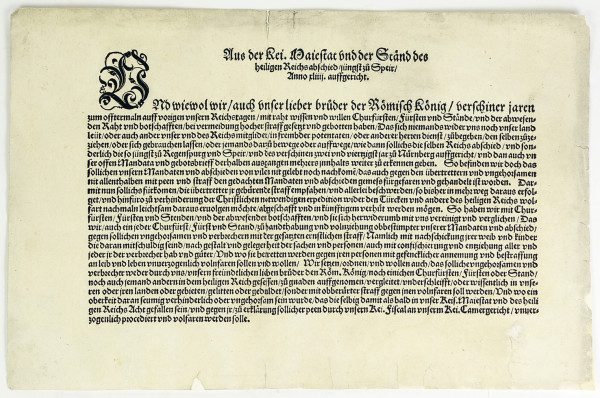 Aus der Kei. Maiestat vnd der Ständ des
heiligen Reichs abschied/jüngst zů Speir/
Anno xliiij. auffgericht.
VNd wiewol wir/auch vnser lieber brůder der Römisch König/verschiner jaren
zum offtermaln auff vorigen vnsern Reichstagen/mit raht wissen vnd willen Churfürsten/Fürsten vnd Stände/vnd der abwesen-
den Raht vnd botschafften/bei vermeidung hocher straff gesetzt vnd gebotten haben/Das sich niemands wider vns noch vnser land
leüt/oder auch ander vnser vnd des Reichs mitglider/in frembder potentaten/oder anderer herren dienst/zůbegeben/den selben zůzie-
ziehen/oder sich gebrauchen lassen/oder jemands darzů bewege oder auffwige/wie dann sollichs die selben Reichs abschid/vnd son-
derlich die so jüngst zů Regenspurg vnd Speir/vnd des verschinen zwei vnd viertzigst jar zů Nürnberg auffgericht/vnd dan auch vn
ser offen Mandata vnd gebotsbrieff derhalben ausgangen mehrers innhalts weiter zů erkennen geben. So befinden wir doch das
sollichen vnsern Mandaten vnd abschieden von vilen nit gelebt noch nachkomē/das auch gegen den übertrettern vnd vngehorsamen
mit allenthalben mit peen vnd straff den gedachten Mandaten vnd abschieden gemess fürgefaren vnd gehandelt ist worden. Dar-
mit nun sollichs fürkommen/die übertretter jr gebürende straff empfahen/vnd allerlei beschwerden/so bisher in mehr weg daraus erfol-
get/vnd hinfüro zů verhinderung der Christlichen notwendigen expedition wider den Türcken vnd andere des heiligen Reichs wol-
fart nachmaln leichtsam daraus erfolgen möchte/abgeschafft vnd in künfftigem verhüt werden mögen. So haben wir mit Chur-
fürsten/Fürsten vnd Stenden/vnd der abwesender botschafften/vnd sie sich herwiderumb mit vns vereinigt vnd verglichen/Das
wir/auch ein jeder Churfürst/Fürst vnd Stand/zů handthabung vnd volnziehung obbestimpter vnserer Mandaten vnd abschied/
gegen sollichen vngehorsamen vnd verbrechern mit der gesatzten ernstlichen straff/Namlich mit nachschickung jrer weib vnd kinder
die daran mitschuldig seind/nach gestalt vnd gelegenheit der sachen vnd personen/auch mit confiscierung vnd entziehung aller vnd
jeder jr der verbrecher hab vnd güter. Vnd wo sie betretten werden gegen jren personen mit gefencklicher annemung vnd bestraffung
an leib vnd leben vnuerzogenlich volnfaren sollen vnd wollen/Wir setzen/ordnen/vnd wollen auch/das sollicher vngehorsamen vnd
verbrecher weder durch vns/vnsern freindtlichen lieben brůder den Röm. König/noch einichen Churfürsten/Fürsten oder Stand/
noch auch jemand andern in dem heiligen Reich gesessen/zů gnaden auffgenomen/vergleitet/vnderschleifft/oder wissentlich in vnse-
ren oder jren landen oder gebieten/gelitten oder geduldet/sonder mit obberürter straff gegen jnen volnfaren soll werden/Vnd wo ein
oberkeit daran seumig verhinderlich oder vngehorsam sein wurde/das die selbig damit als bald in vnser Keis. Maiestat vnd des heili
gen Reichs Acht gefallen sein/vnd gegen jr/zů erklärung sollicher peen durch vnsern Kei. Fiscal an vnserm Kei. Camergericht/vnuer-
zogenlich procediert vnd volfaren werden solle.